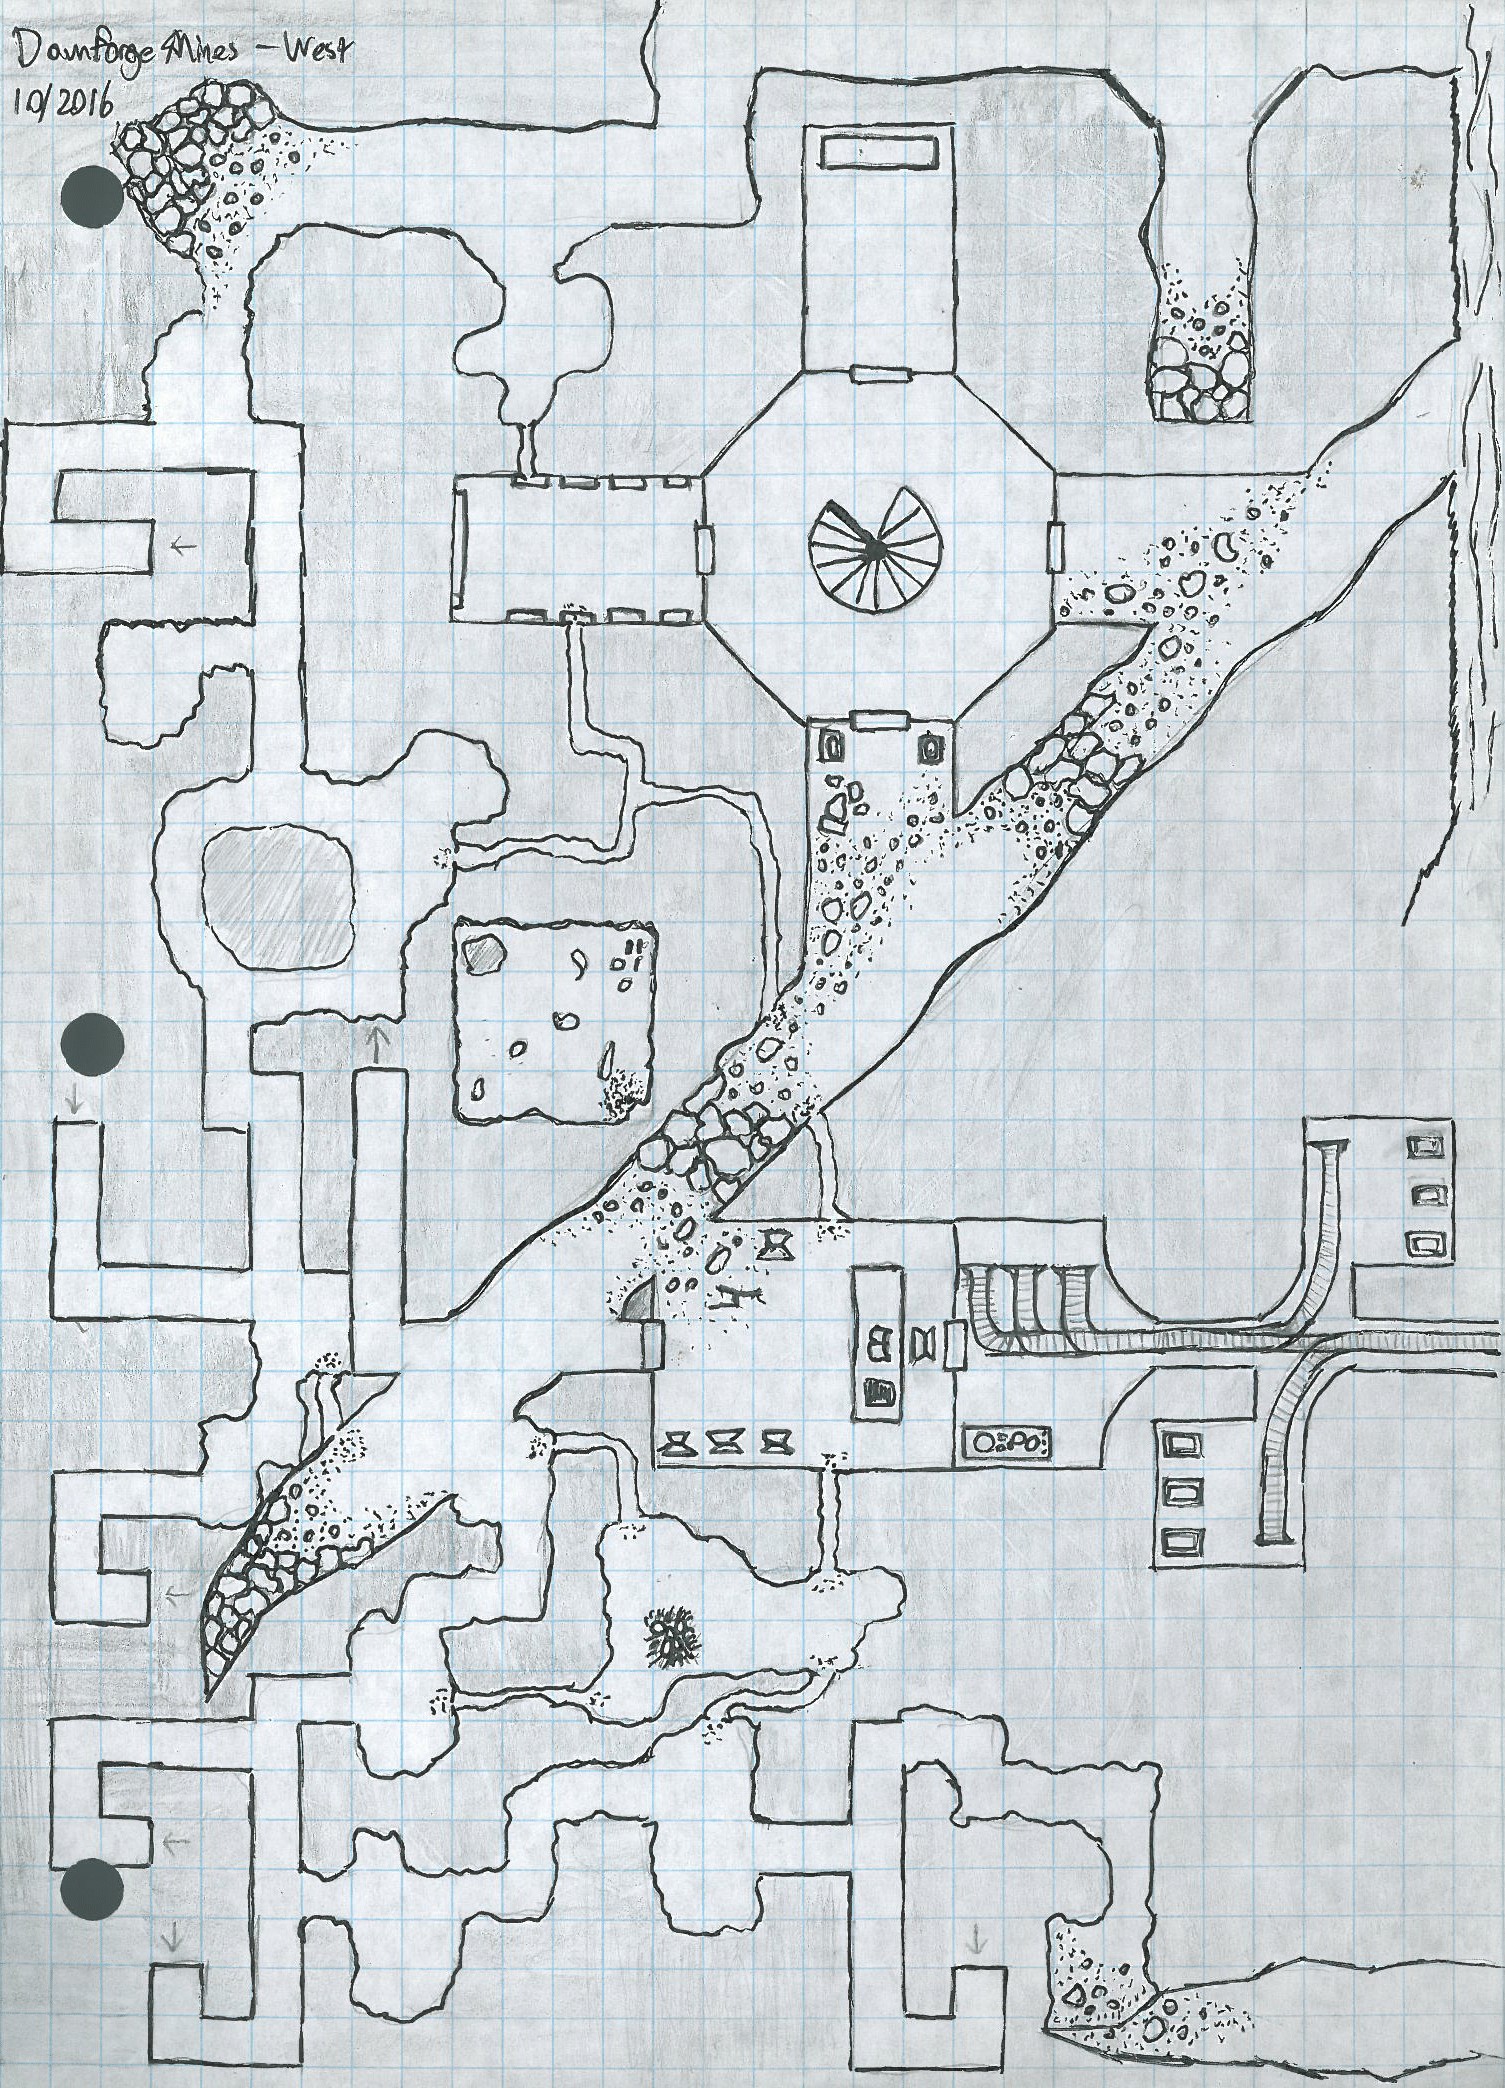 Downforge Mines - West
10/2016